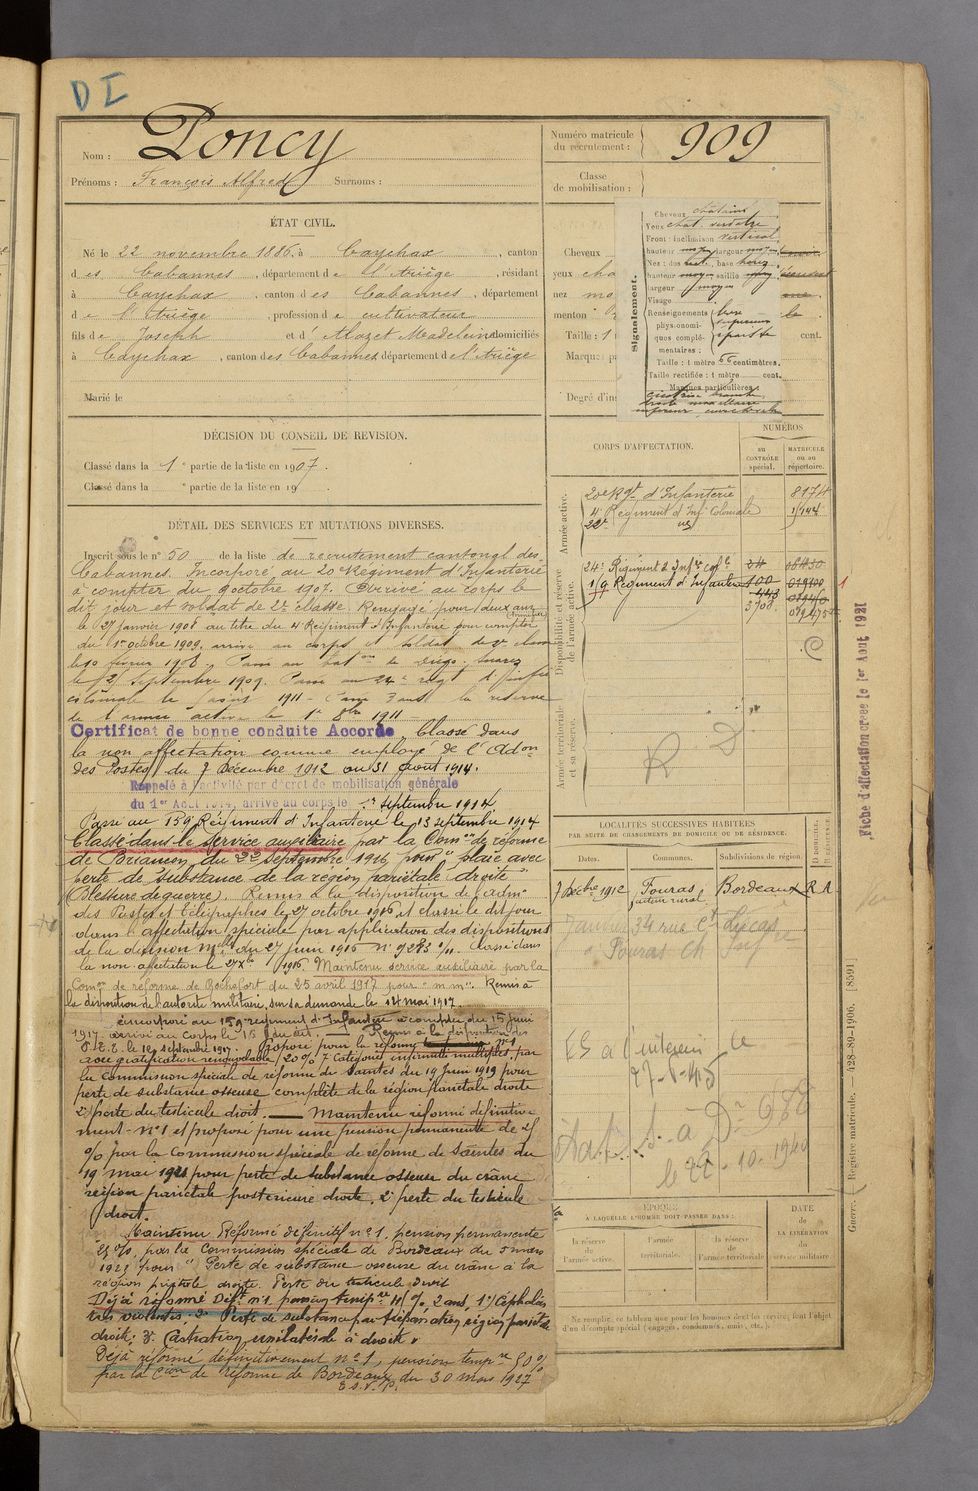 D I
Nom : Poncy
Prénoms : François Alfred Surnoms :
Numéro matricule du recrutement : 909
Classe de mobilisation :
ÉTAT CIVIL.
Né le 22 novembre 1886, à Caychax, canton
des Cabannes, département de l'Ariège, résidant
à Caychax, canton des Cabannes, département
de l'Ariège, profession de cultivateur
fils de Joseph et d' Alazet Madeleine domiciliés
à Caychax, canton des Cabannes, département de l'Ariège
Marié le
DÉCISION DU CONSEIL DE REVISION.
Classé dans la 1e partie de la liste en 1907.
Classé dans la e partie de la liste en 19
DÉTAIL DES SERVICES ET MUTATIONS DIVERSES.
Inscrit sous le n° 50 de la liste de recrutement cantonal des
Cabannes. Incorporé au 20e Régiment d'Infanterie
à compter du 9 octobre 1907. Arrivé au corps le
dit jour et soldat de 2e classe. Rengagé pour deux ans
le 27 janvier 1908 au titre du 4e Régiment d'Infanterie pour compter
du 1er octobre 1909, arrivé au corps et soldat de 2e classe
le 10 février 1908. Passé au bat on de Diego-Suarez
le 2 Septembre 1909. Passé au 24e regt d'Infie
coloniale le 1911 - Passé dans la réserve
de l'armée active le 1er 8bre 1911 -
Certificat de bonne conduite Accordé Classé dans
la non affectation comme employé de l'Adon
des Postes du 7 Décembre 1912 au 31 août 1914.
Rappelé à l'activité par décret de mobilisation générale
du 1er Août 1914, arrivé au corps le 1r septembre 1914
Passé au 159e Régiment d'Infanterie le 13 septembre 1914
Classé dans le service auxiliaire par la Comon de réforme
de Briançon du 22 septembre 1916 pour "plaie avec
perte de substance de la région pariétale droite"
(Blessure de guerre). Remis à la disposition de l'admon
des Postes et Télégraphes le 27 octobre 1916 et classé le dit jour
dans l'affectation spéciale par application des dispositions
de la décision Mlle du 27 juin 1916 n° 9283 1/11. Classé dans
la non affectation le 27 Xbre 1916. Maintenu service auxiliaire par la
Comon de réforme de Rochefort du 25 avril 1917 pour "m.m". Remis à
la disposition de l'autorité militaire, sur sa demande le 14 mai 1917.
Incorporé au 159e régiment d'Infanterie à compter du 15 juin
1917 arrivé au corps le 15 du dit. Remis à la disposition des
P.T.T. le 10 septembre 1917. Proposé pour la réforme n°1
avec gratification renouvelable (20% 7e Catégorie) infirmités multiples, par
la Commission spéciale de réforme de Saintes du 19 juin 1919 pour
perte de substance osseuse complète de la région pariétale droite
2° perte du testicule droit. Maintenu réformé définitive
ment n°1 et proposé pour une pension permanente de 25
% par la Commission spéciale de réforme de Saintes du
19 mai 1921 pour perte de substance osseuse du crâne
région pariétale postérieure droite, 2° perte du testicule
droit.
Maintenu Réformé définitif n°1, pension permanente
25%, par la Commission spéciale de Bordeaux du 5 mars
1925 pour " Perte de substance osseuse du crâne à la
région pariétale droite. Perte du testicule droit
Déjà réformé Déf.t n°1 pension temp.re 10%, 2 ans, 1° Céphalées
très violentes; 2° Perte de substance par trépanation région pariétale
droite; 3° Castration unilatérale à droite"
Déjà réformé définitivement n°1, pension temp.re 50%
par la Cion de réforme de Bordeaux du 30 mars 1927
Cheveux
yeux cha
nez mo
menton
Taille : 1 cent.
Marqu
Degré d'ins
Signalement.
Cheveux châtains
Yeux chat. verdatre
Front : inclinaison vertical
hauteur moy largeur moyen
Nez : dos rect. base horiz.
hauteur moyen saillie moy
largeur moyen
Visage
Renseignements physionomiques complémentaires :
épaisse
Taille : 1 mètre 66 centimètres.
Taille rectifiée : 1 mètre cent.
Marques particulières
cicatrice blanche
droite maxillaire
inférieur
CORPS D'AFFECTATION.
NUMÉROS
au CONTRÔLE spécial.
MATRICULE ou au répertoire.
Armée active.
20e Rgt d'Infanterie 8174
4e Régiment d'Inf. Coloniale 1/144
22e
Disponibilité et réserve de l'armée active.
24e Régiment d'Infrie Colle
159 Régiment d'Infanterie 100
443
3708
Armée territoriale et sa réserve.
R. D.
Fiche d'affectation créée le 1er Août 1921
LOCALITÉS SUCCESSIVES HABITÉES
PAR SUITE DE CHANGEMENTS DE DOMICILE OU DE RÉSIDENCE.
Dates. Communes. Subdivisions de région. D DOMICILE. R RÉSIDENCE.
7 Décbre 1912 Fouras facteur rural Bordeaux R.A.
Janvier 34 rue
à Fouras Ch Infre
27-6-45
Registre matricule. — 428-89-1906. [8591]
ÉPOQUE
À LAQUELLE L'HOMME DOIT PASSER DANS :
la réserve de l'armée active.
l'armée territoriale.
la réserve de l'armée territoriale
DATE de LA LIBÉRATION du service militaire
Ne remplir ce tableau que pour les hommes dont les services font l'objet
d'un décompte spécial (engagés, condamnés, omis, etc.).